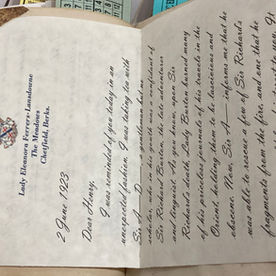 Lady Eleanora Ferrers-Lansdowne
The Meadows
Chetfield, Berks.
2 June 1923
Dear Henry,
I was reminded of you today in an
unexpected fashion. I was taking tea with
Sir A— D—
scholar, who in his youth was a confidant of
Sir Richard Burton, the late adventurer
and linguist. As you know, upon Sir
Richard's death, Lady Burton burned many
of his priceless journals of his travels in the
Orient, holding them to be lascivious and
obscene. Now, Sir A— informs me that he
was able to rescue a few of Sir Richard's
fragments from the fire, and one that he